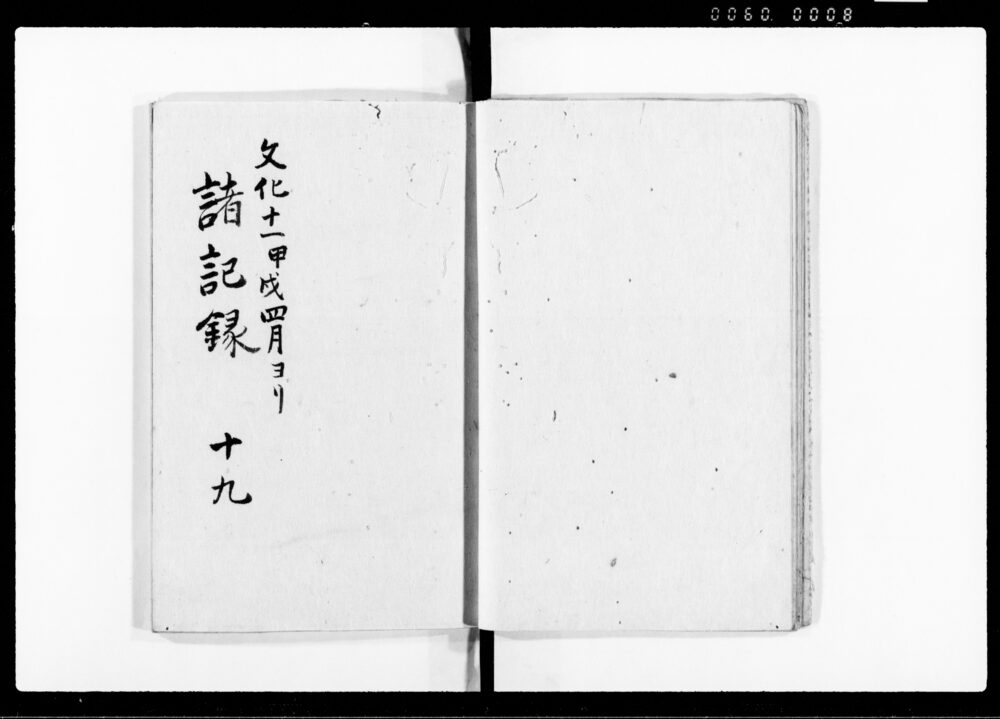 0060. 0008
文化十一甲戌四月ヨリ
諸記録 十九